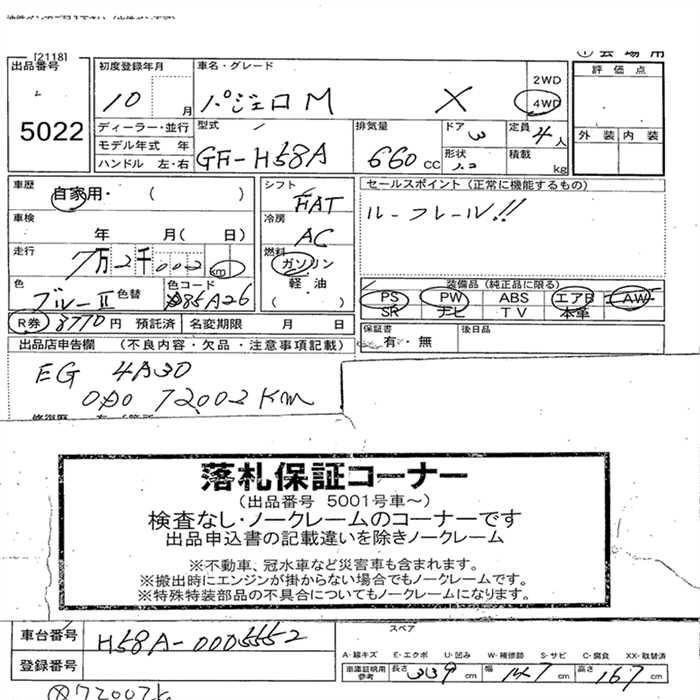 [2118]
出品番号
5022
初度登録年月
10 月
車名・グレード
パジェロM X
2WD
4WD
ディーラー・並行
モデル年式 年
ハンドル 左・右
型式
GF-H58A
排気量
660 CC
ドア 3
形状
定員 4人
積載 kg
評価点
外装 内装
車歴
自家用・( )
車検
年 月( 日)
走行
7万2千002 km
色
ブルーII 色替
色コード
シフト
FAT
冷房
AC
燃料
ガソリン
軽・油
( )
セールスポイント(正常に機能するもの)
ルーフレール!!
装備品(純正品に限る)
PS PW ABS エアB AW
SR ナビ TV 本革
R券 8770円 預託済 名変期限 月 日
保証書
有・無
後日品
出品店申告欄 (不良内容・欠品・注意事項記載)
EG 4A30
72002Km
落札保証コーナー
(出品番号 5001号車~)
検査なし・ノークレームのコーナーです
出品申込書の記載違いを除きノークレーム
※不動車、冠水車など災害車も含まれます。
※搬出時にエンジンが掛からない場合でもノークレームです。
※特殊特装部品の不具合についてもノークレームになります。
車台番号 H58A-0005552
登録番号
スペア
A-線キズ E-エクボ U-凹み W-補修跡 S-サビ C-腐食 XX-取替済
車庫証明用参考 長さ 339 cm 幅 147 cm 高さ 167 cm